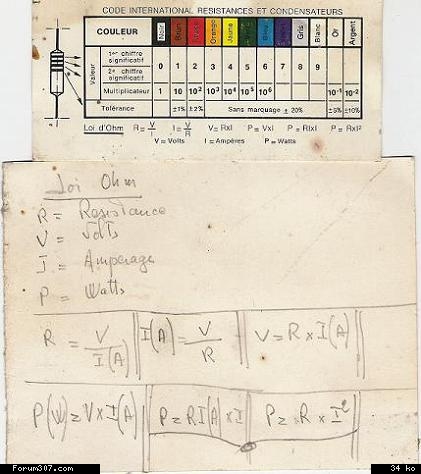 CODE INTERNATIONAL RESISTANCES ET CONDENSATEURS
COULEUR Noir Brun Rouge Orange Jaune Vert Bleu Gris Blanc Or Argent
Valeur
1er chiffre significatif 0 1 2 3 4 5 6 7 8 9
2e chiffre significatif
Multiplicateur 1 10 10² 10³ 10⁴ 10⁵ 10⁶ 10⁻¹ 10⁻²
Tolérance ±1% ±2% Sans marquage ± 20% ±5% ±10%
Loi d'Ohm R= V/I I= V/R V= RxI P= VxI P= RIxI P= RxI²
V = Volts I = Ampères P = Watts
Loi Ohm
R = Resistance
V = Volts
I = Amperage
P = Watts
R = V/I(A) I(A) = V/R V = R x I(A)
P(W) = V x I(A) P = RI(A) x I P = R x I²
Forum307.com 34 ko